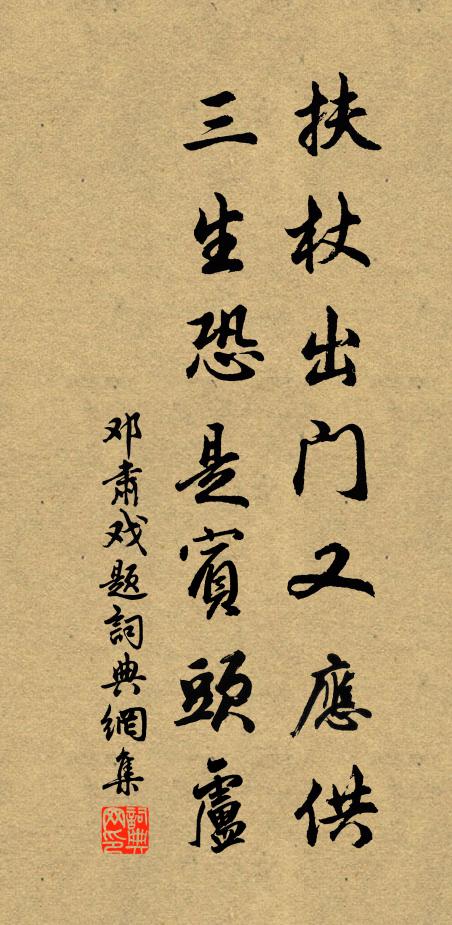 扶杖出門又應供
三生恐是賓頭盧
邓肅戏题詞典網集
詞典网印